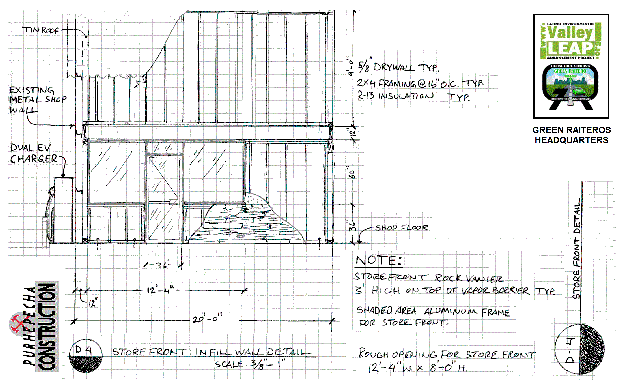 TIN ROOF
EXISTING
METAL SHOP
WALL
DUAL EV
CHARGER
5/8" DRYWALL TYP.
2X4 FRAMING @ 16" O.C. TYP.
2-13 INSULATION TYP.
Valley
LEAP
GREEN RAITEROS
HEADQUARTERS
12"
60"
36"
SHOP FLOOR
1-36"
12'-4"
12"
20'-0"
NOTE:
STORE FRONT ROCK VANEER
3' HIGH ON TOP OF VAPOR BARRIER TYP.
SHADED AREA ALUMINUM FRAME
FOR STORE FRONT.
ROUGH OPENING FOR STORE FRONT
12'-4" W X 8'-0" H.
PURHEPECHA
CONSTRUCTION
D4
STORE FRONT: INFILL WALL DETAIL
SCALE 3/8"-1"
STORE FRONT DETAIL
D4